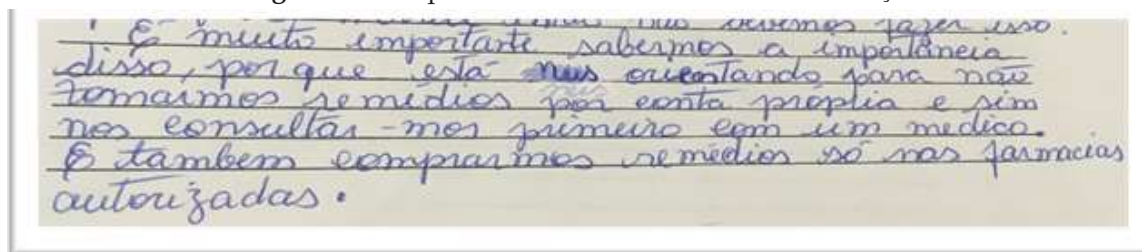 não devemos fazer isso.
É muito importante sabermos a importância
disso, por que está nus orientando para não
tomarmos remédios por conta próplia e sim
nos consultar-mos primeiro com um medico.
E tambem comprarmos remédios só nas farmacias
autorizadas.